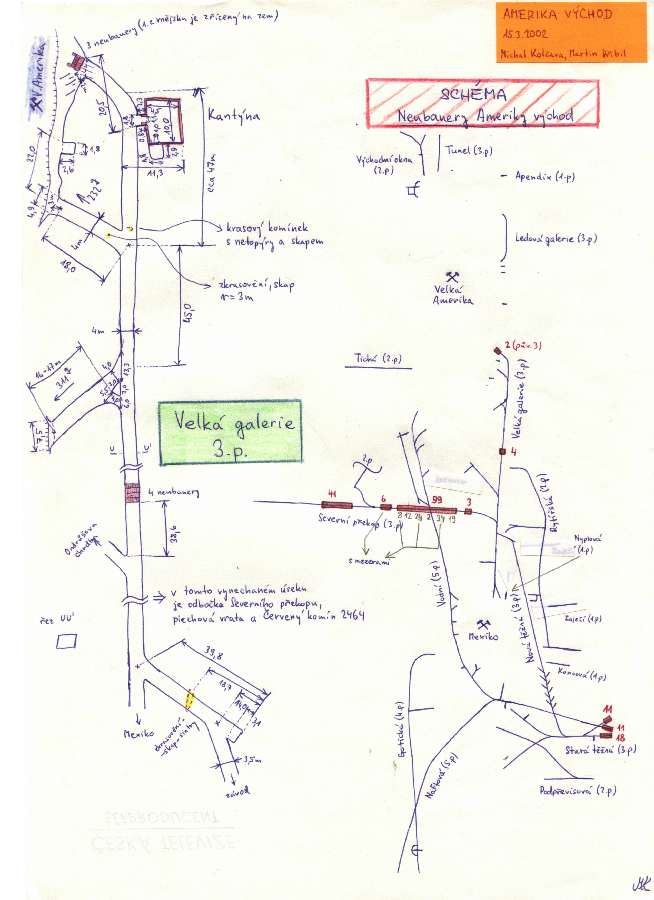 AMERIKA VÝCHOD
15.3.2002
Michal Kolčava, Martin Vrbil
SCHÉMA
Neubauery Ameriky východ
3 neubauery (1. z vnějšku je zřícený na zem)
V. Amerika
20,5
Kantýna
10,0
11,3
cca 47m
22,0
1,8
2,6
4,9
3m
232,7
4m
18,0
krasový komínek
s netopýry a skapem
zkrasovění, skap
r=3m
45,0
4m
14-17m
311,9
7,5
13,3
Velká galerie
3.p.
4 neubauery
32,6
Ondrášova
chodba
v tomto vynechaném úseku
je odbočka Severního překopu,
plechová vrata a Červený komín 2464
řez UU'
39,8
18,7
14,0
3,1
3,5m
Mexiko
zkrasovění-
skap-sintry
závod
Východní okna
(2.p)
Tunel (3.p)
Apendix (1.p)
Ledová galerie (3.p)
Velká
Amerika
Tichá (2.p)
2 (pův. 3)
Velká galerie (3.p)
4
2.p
41
6
99
3
Severní překop (3.p)
8 12 26 2 34 19
s mezerami
Rytířská (1.p)
Nyplová
(1.p)
Vodní (5.p)
Nová těžná (3.p)
Zaječí (1.p)
Mexiko
Koncová (1.p)
Gotická (4.p)
Naftová (5.p)
11
11
18
Stará těžná (3.p)
Podpřevisová (2.p)
ČESKÁ TELEVIZE
MK